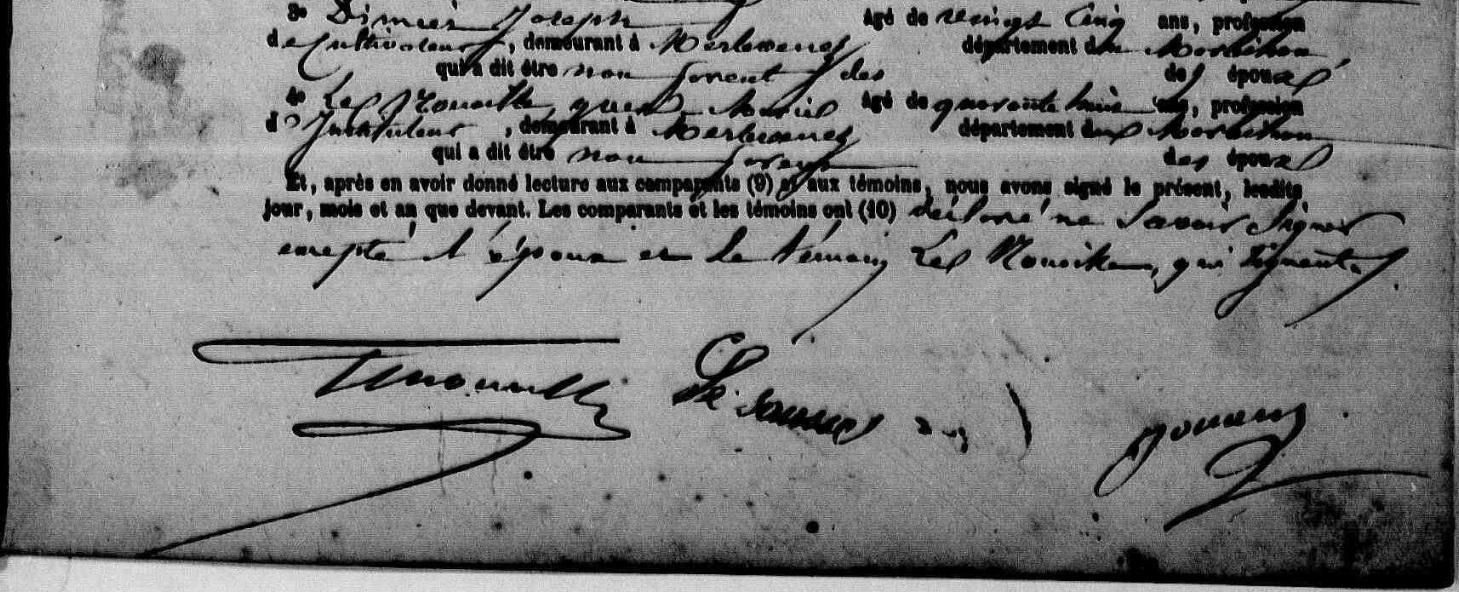 3o Dimier Joseph âgé de vingt Cinq ans, profession
de Cultivateur, demeurant à Merlevenez département du Morbihan
qui a dit être non parent des époux
4o Le âgé de quarante huit ans, profession
d'Instituteur, demeurant à Merlevenez département du Morbihan
qui a dit être non parent des époux
Et, après en avoir donné lecture aux comparants (9) et aux témoins, nous avons signé le présent, lesdits
jour, mois et an que devant. Les comparants et les témoins ont (10) déclaré ne Savoir Signer
excepté l'époux et le témoin Le qui signent.